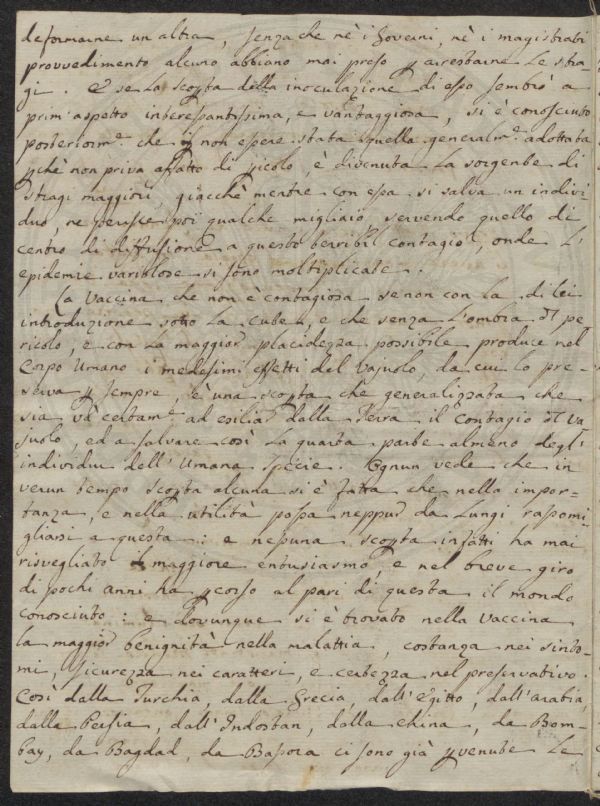 deformarne un'altra, senza che nè i Governi, nè i magistrati
provvedimento alcuno abbiano mai preso p arrestarne le stra-
gi. E se la scopta della inoculazione di esso sembrò a
prim'aspetto interessantissima, e vantaggiosa, si è conosciuto
posteriorm.e che non essere stata quella generalm.e adottata
pchè non priva affatto di picolo, è divenuta la sorgente di
stragi maggiori, giacchè mentre con essa si salva un indivi-
duo, ne perisce poi qualche migliaio, servendo quello di
centro di diffusione a questo terribil contagio, onde l'
epidemie variolose si sono moltiplicate.
La Vaccina che non è contagiosa se non con la di lei
introduzione sotto la cute, e che senza l'ombra di pe-
ricolo, e con la maggior placidezza possibile produce nel
Corpo Umano i medesimi effetti del Vajuolo, da cui lo pre-
serva p sempre, è una scopta che generalizzata che
sia và certam.e ad esiliar dalla Terra il Contagio di Va-
juolo, ed a salvare così la quarta parte almeno degl'
individui dell'Umana Specie. Ognun vede che in
verun tempo scopta alcuna si è fatta che nella impor-
tanza, e nella utilità possa neppur da lungi rassomi-
gliarsi a questa: e nessuna scopta infatti ha mai
risvegliato il maggiore entusiasmo, e nel breve giro
di pochi anni ha pcorso al pari di questa il mondo
conosciuto: e dovunque si è trovato nella Vaccina
la maggior benignità nella malattia, costanza nei sinto-
mi, sicurezza nei caratteri, e certezza nel preservativo.
Così dalla Turchia, dalla Grecia, dall'Egitto, dall'Arabia,
dalla Persia, dall'Indostan, dalla China, da Bom-
bay, da Bagdad, da Bassora ci sono già pvenute le